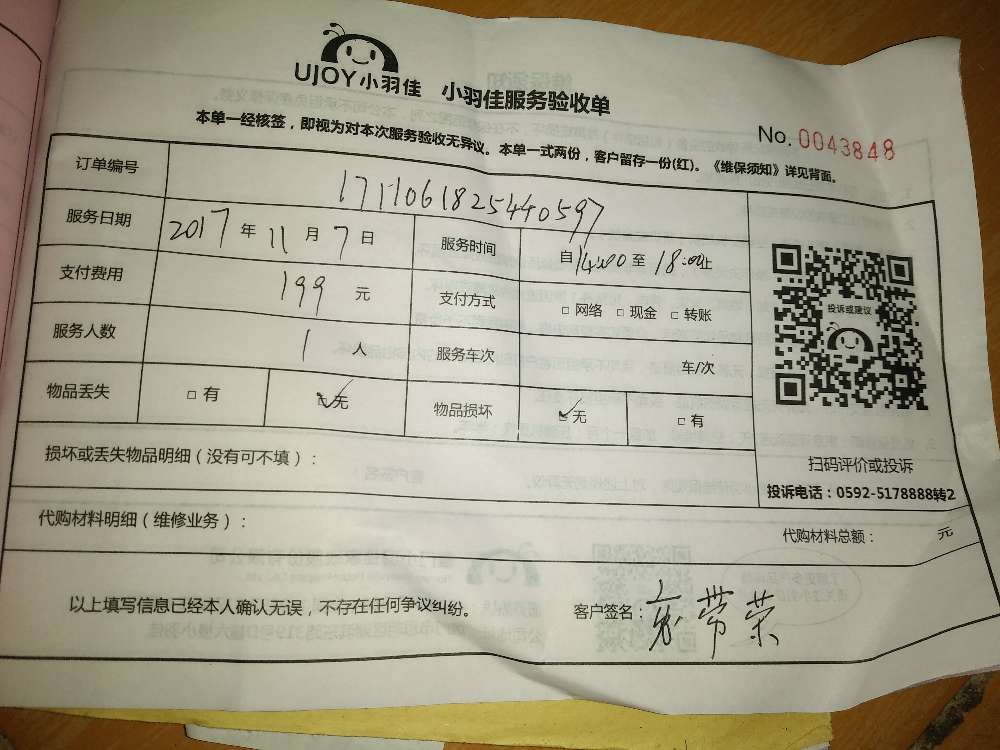 UJOY小羽佳 小羽佳服务验收单
本单一经核签，即视为对本次服务验收无异议。本单一式两份，客户留存一份(红)。《维保须知》详见背面。
No. 0043848
订单编号 1711061825440597
服务日期 2017 年 11 月 7 日 服务时间 自 14:00 至 18:00 止
支付费用 199 元 支付方式 □ 网络 □ 现金 □ 转账
服务人数 1 人 服务车次 车/次
物品丢失 □ 有 ☑ 无 物品损坏 ☑ 无 □ 有
投诉或建议
扫码评价或投诉
投诉电话：0592-5178888转2
损坏或丢失物品明细（没有可不填）：
代购材料明细（维修业务）： 代购材料总额： 元
以上填写信息已经本人确认无误，不存在任何争议纠纷。 客户签名：